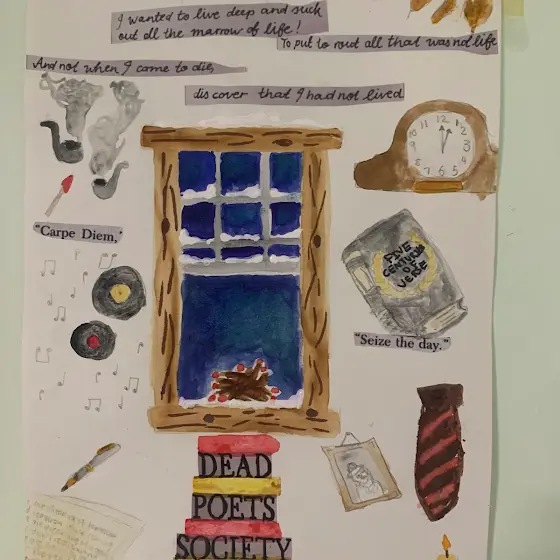 I wanted to live deep and suck
out all the marrow of life!
To put to rout all that was not life
And not when I came to die,
discover that I had not lived
11 12 1
10 2
9 3
8 4
7 6 5
"Carpe Diem,"
FIVE
CENTURIES
OF
VERSE
"Seize the day."
DEAD
POETS
SOCIETY